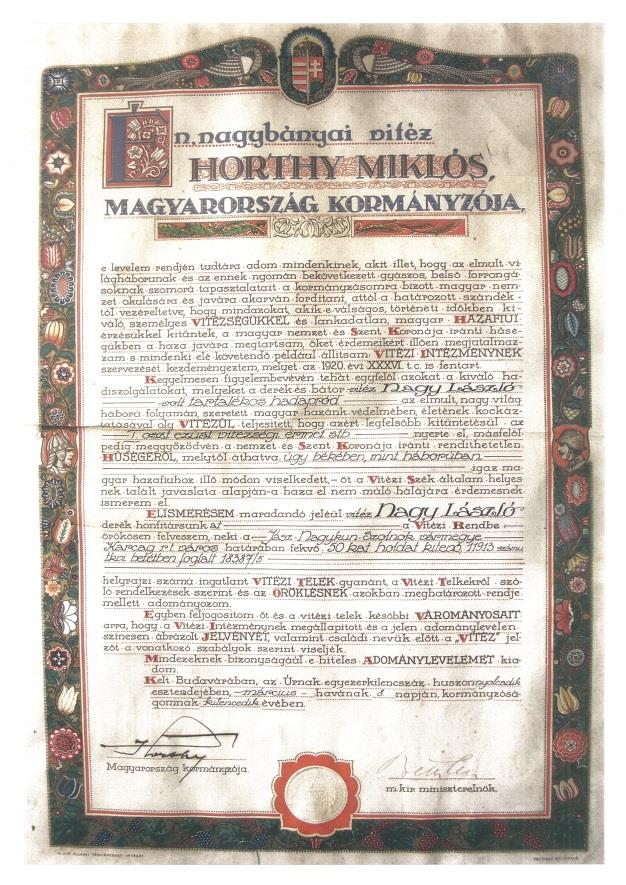 Én, nagybányai vitéz
HORTHY MIKLÓS,
MAGYARORSZÁG KORMÁNYZÓJA,
e levelem rendjén tudtára adom mindenkinek, akit illet, hogy az elmult vi-
lágháborunak és az ennek nyomán bekövetkezett gyászos, belső forrongá-
soknak szomorú tapasztalatait a kormányzásomra bizott magyar nem-
zet okulására és javára akarván fordítani, attól a határozott szándék-
tól vezéreltetve, hogy mindazokat, akik e válságos, történeti időkben ki-
váló, személyes VITÉZSÉGÜKKEL és lankadatlan, magyar HAZAFIUI
érzésükkel kitüntek, a magyar nemzet és Szent Koronája iránti hűsé-
gükben a haza javára megtartsam, őket érdemeikért illően megjutalmaz-
zam s mindenki elé követendő például állitsam VITÉZI INTÉZMÉNYNEK
szervezését kezdeményeztem, melyet az 1920. évi XXXVI. t. c. is fentart.
Kegyelmesen figyelembevévén tehát egyfelől azokat a kiváló ha-
diszolgálatokat, melyeket a derék és bátor vitéz Nagy László
volt tartalékos hadapród az elmult, nagy világ
háború folyamán, szeretett magyar hazánk védelmében, életének kockáz-
tatásával oly VITÉZÜL teljesitett, hogy azért legfelsőbb kitüntetésül az
I. oszt. ezüst vitézségi érmet stb. nyerte el, másfelől
pedig meggyőződvén a nemzet és Szent Koronája iránti rendithetetlen
HŰSÉGÉRŐL, melytől áthatva úgy békében, mint háborúban
igaz ma-
gyar hazafiuhoz illő módon viselkedett, – őt a Vitézi Szék általam helyes-
nek talált javaslata alapján a haza el nem múló hálájára érdemesnek
ismerem el.
ELISMERÉSEM maradandó jeléül vitéz Nagy László
derék honfitársunkat a Vitézi Rendbe
örökösen felveszem, neki a Jász-Nagykun-Szolnok vármegye
Karcag r.t. város határában fekvő 50 kat. holdat kitenő, 11913 számu
tkvi betétben foglalt 18387/5
helyrajzi számú ingatlant VITÉZI TELEK gyanánt, a Vitézi Telkekről szó-
ló rendelkezések szerint és az ÖRÖKLÉSNEK azokban meghatározott rendje
mellett adományozom.
Egyben feljogositom őt és a vitézi telek későbbi VÁROMÁNYOSAIT
arra, hogy a Vitézi Intézménynek megállapitott és a jelen adománylevélen
szinesen ábrázolt JELVÉNYÉT, valamint családi nevük előtt a „VITÉZ” jel-
zőt a vonatkozó szabályok szerint viseljék.
Mindezeknek bizonyságáúl e hiteles ADOMÁNYLEVELEMET kia-
dom.
Kelt Budavárában, az Úrnak egyezerkilencszáz huszonnyolcadik
esztendejében, március havának 8. napján, kormányzósá-
gomnak kilencedik évében.
Horthy
Magyarország kormányzója.
m. kir. miniszterelnök.